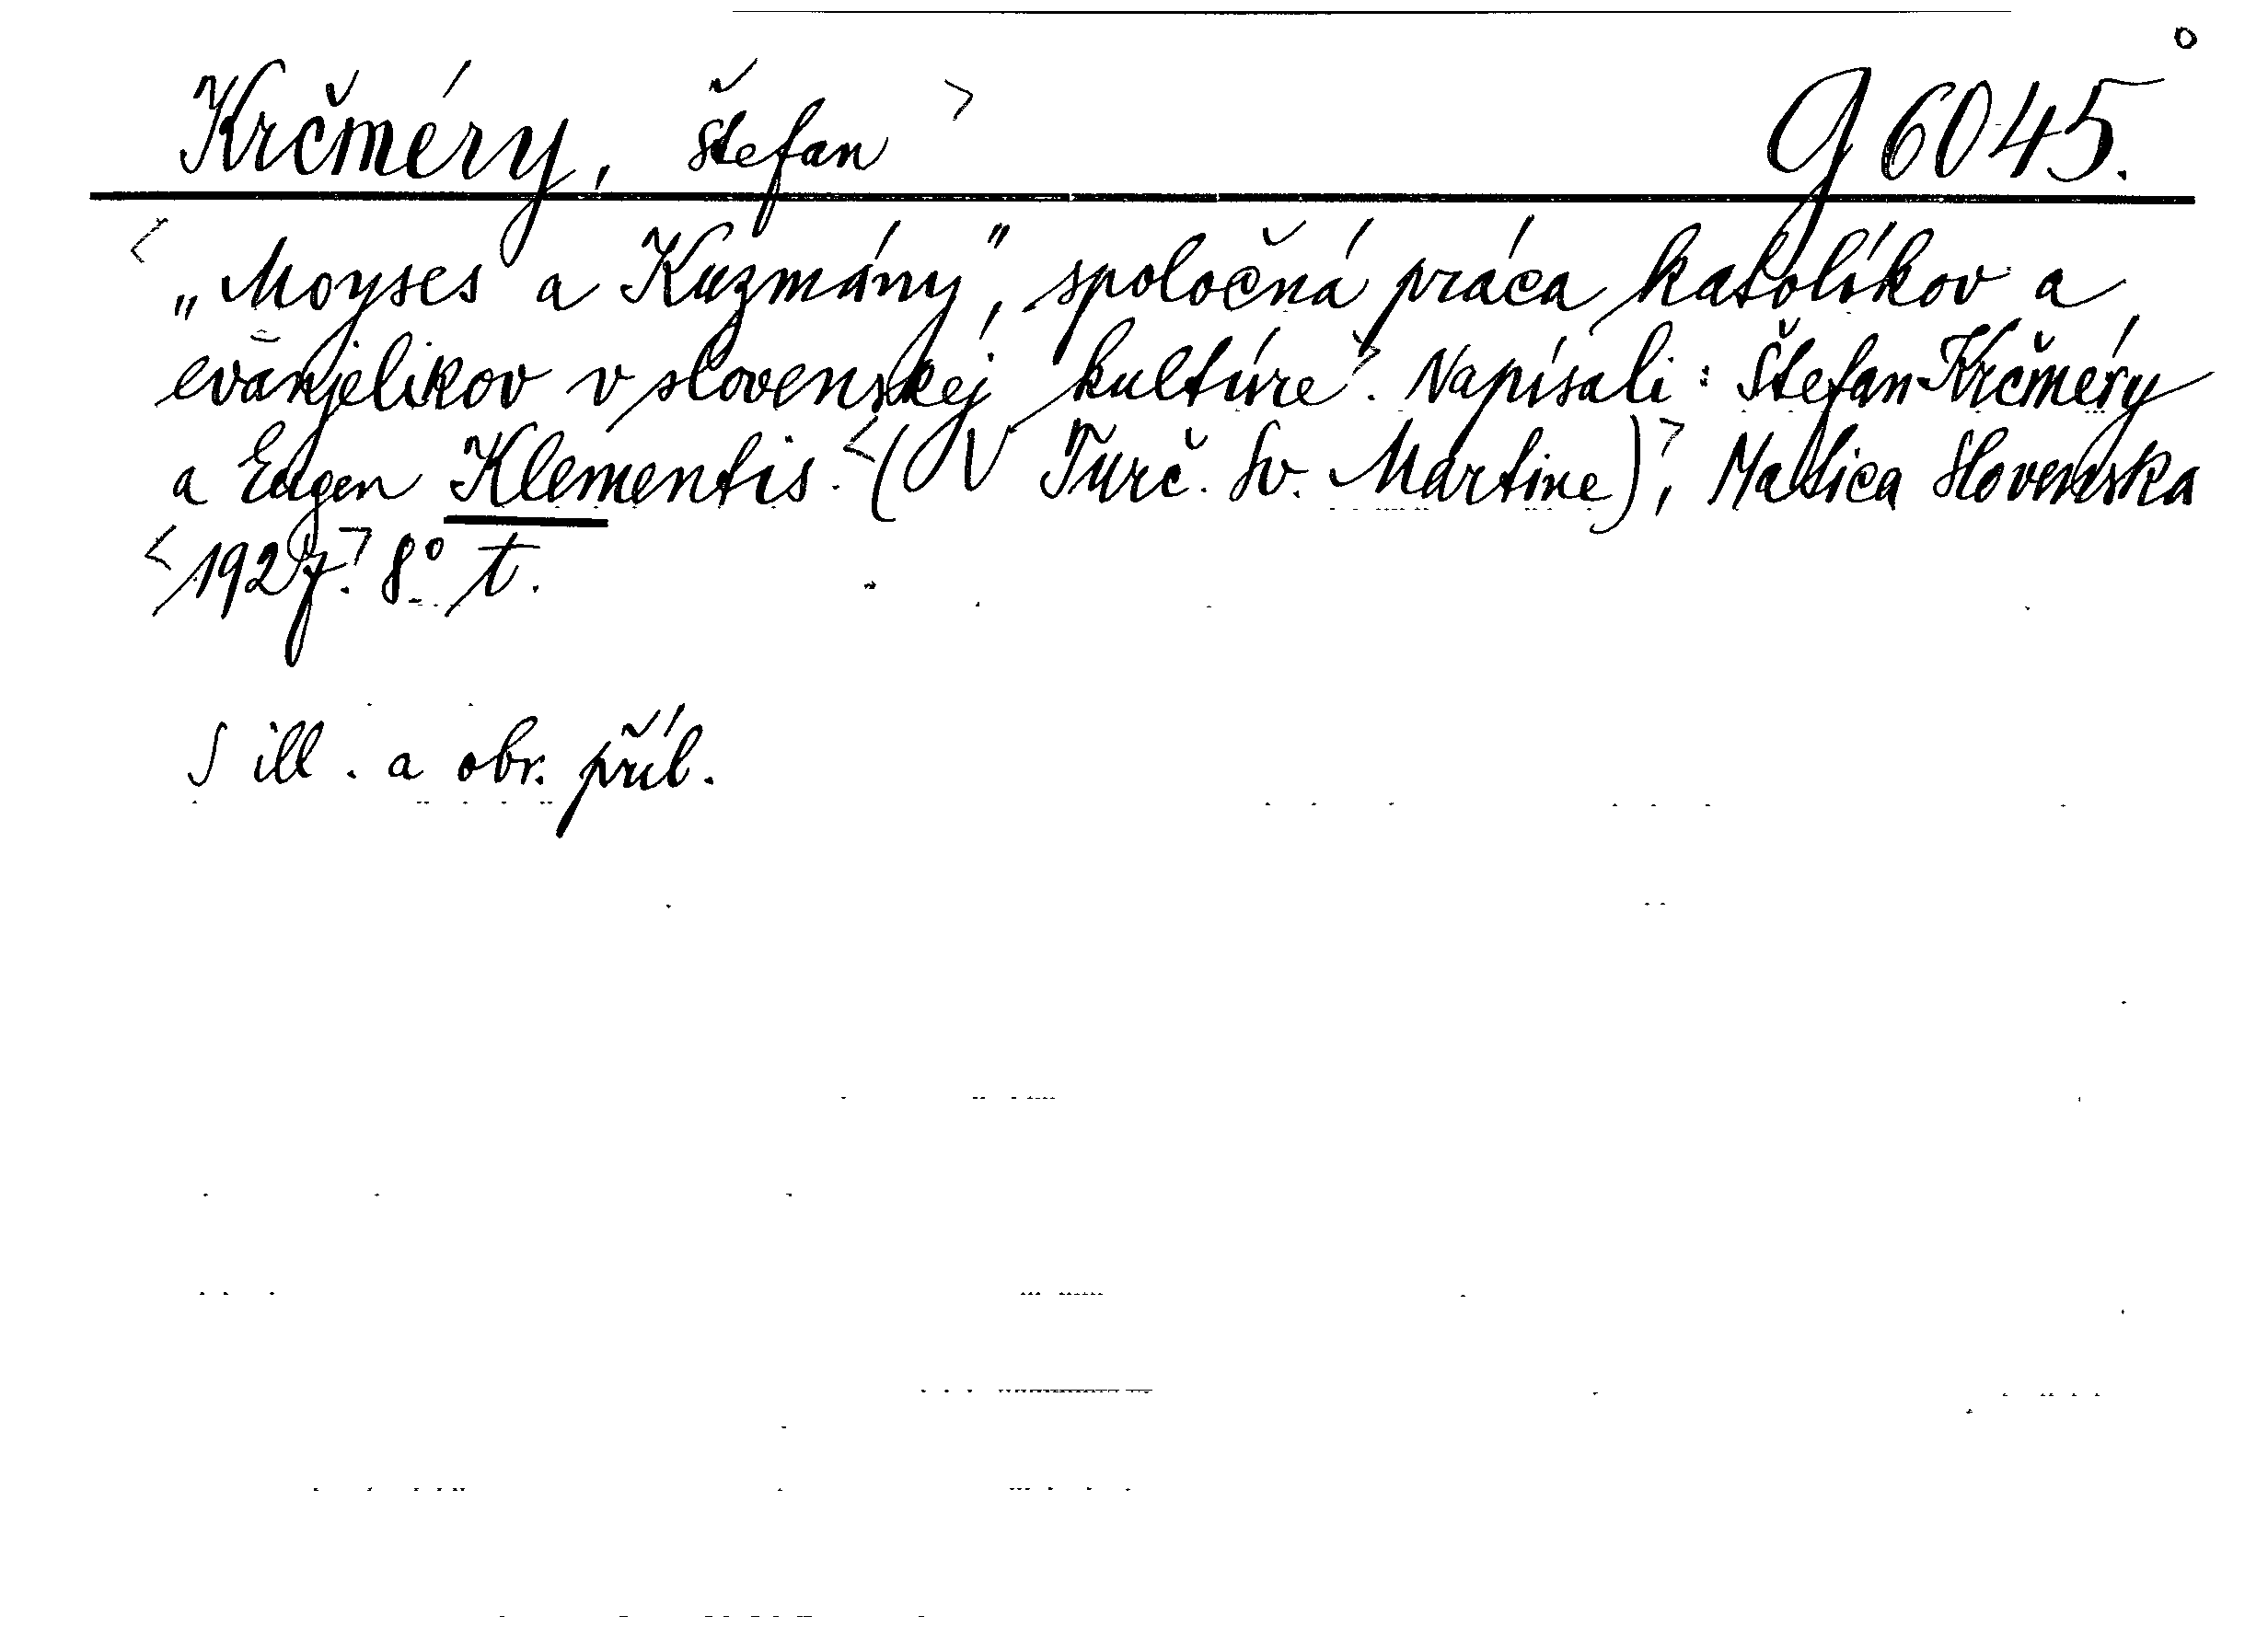 Krčméry, Štefan > g 6045.
< „Moyses a Kuzmány", spoločná práca katolíkov a
evanjelikov v slovenskej kultúre>. Napísali: Štefan Krčméry
a Eugen Klementis. <(V Turč. Sv. Martine)>, Matica Slovenska
<1927>. 8° t.
S ill. a obr. příl.